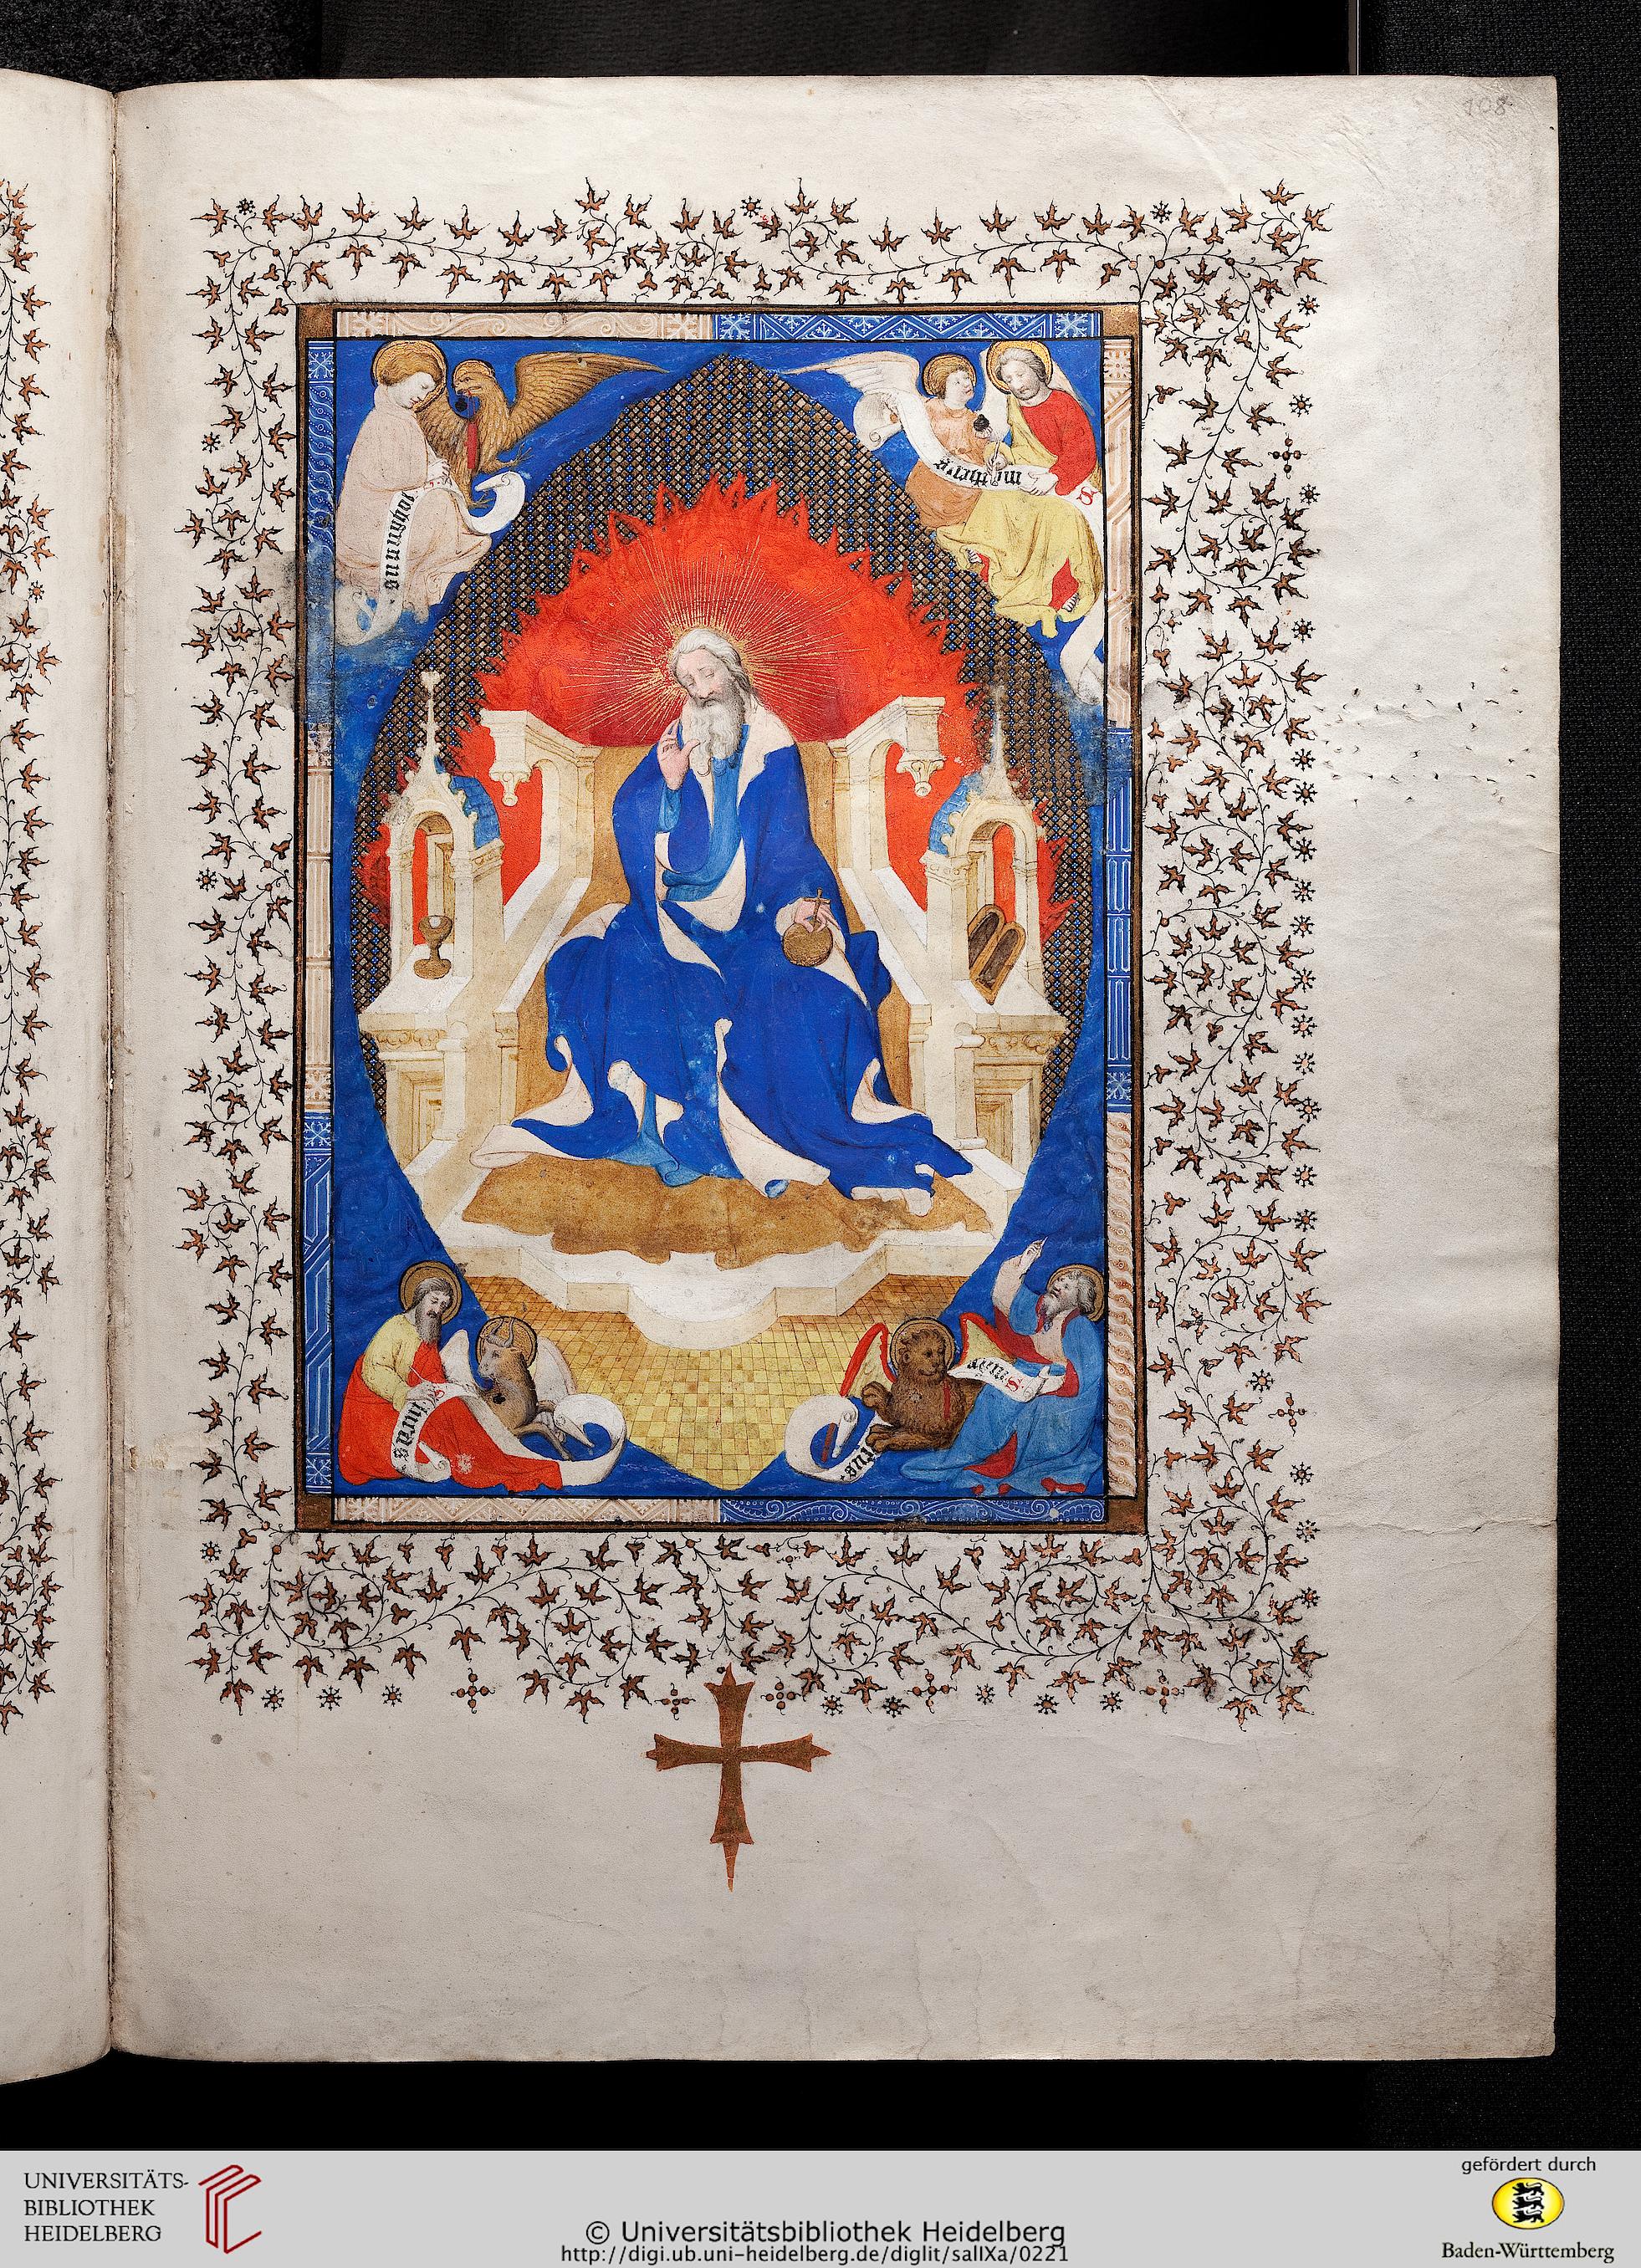 108
S Johannus
S matheus
S lucas
S marcus
UNIVERSITÄTS-
BIBLIOTHEK
HEIDELBERG
© Universitätsbibliothek Heidelberg
http://digi.ub.uni-heidelberg.de/diglit/salIXa/0221
gefördert durch
Baden-Württemberg